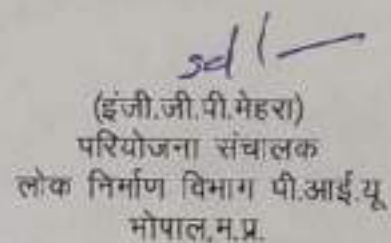 sd/-
(इंजी.जी.पी.मेहरा)
परियोजना संचालक
लोक निर्माण विभाग पी.आई.यू
भोपाल,म.प्र.